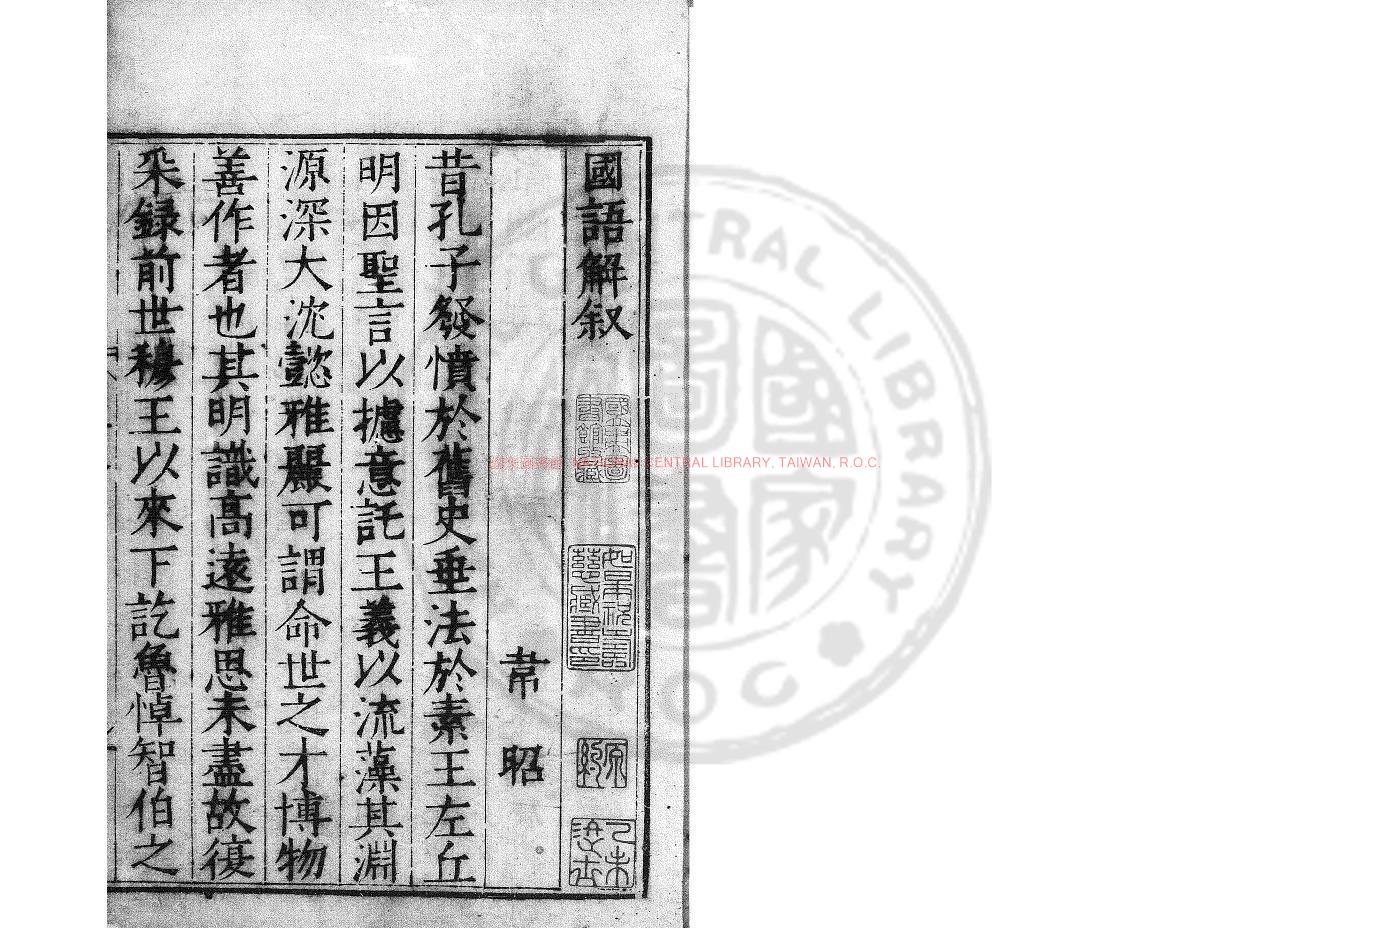 國語解叙
韋昭
昔孔子發憤於舊史垂法於素王左丘
明因聖言以攄意託王義以流藻其淵
源深大沈懿雅麗可謂命世之才博物
善作者也其明識高遠雅思未盡故復
采録前世穆王以來下訖魯悼智伯之
國立中央圖書館藏
NATIONAL CENTRAL LIBRARY, TAIWAN, R.O.C.
CENTRAL LIBRARY
ROC
國家圖書館